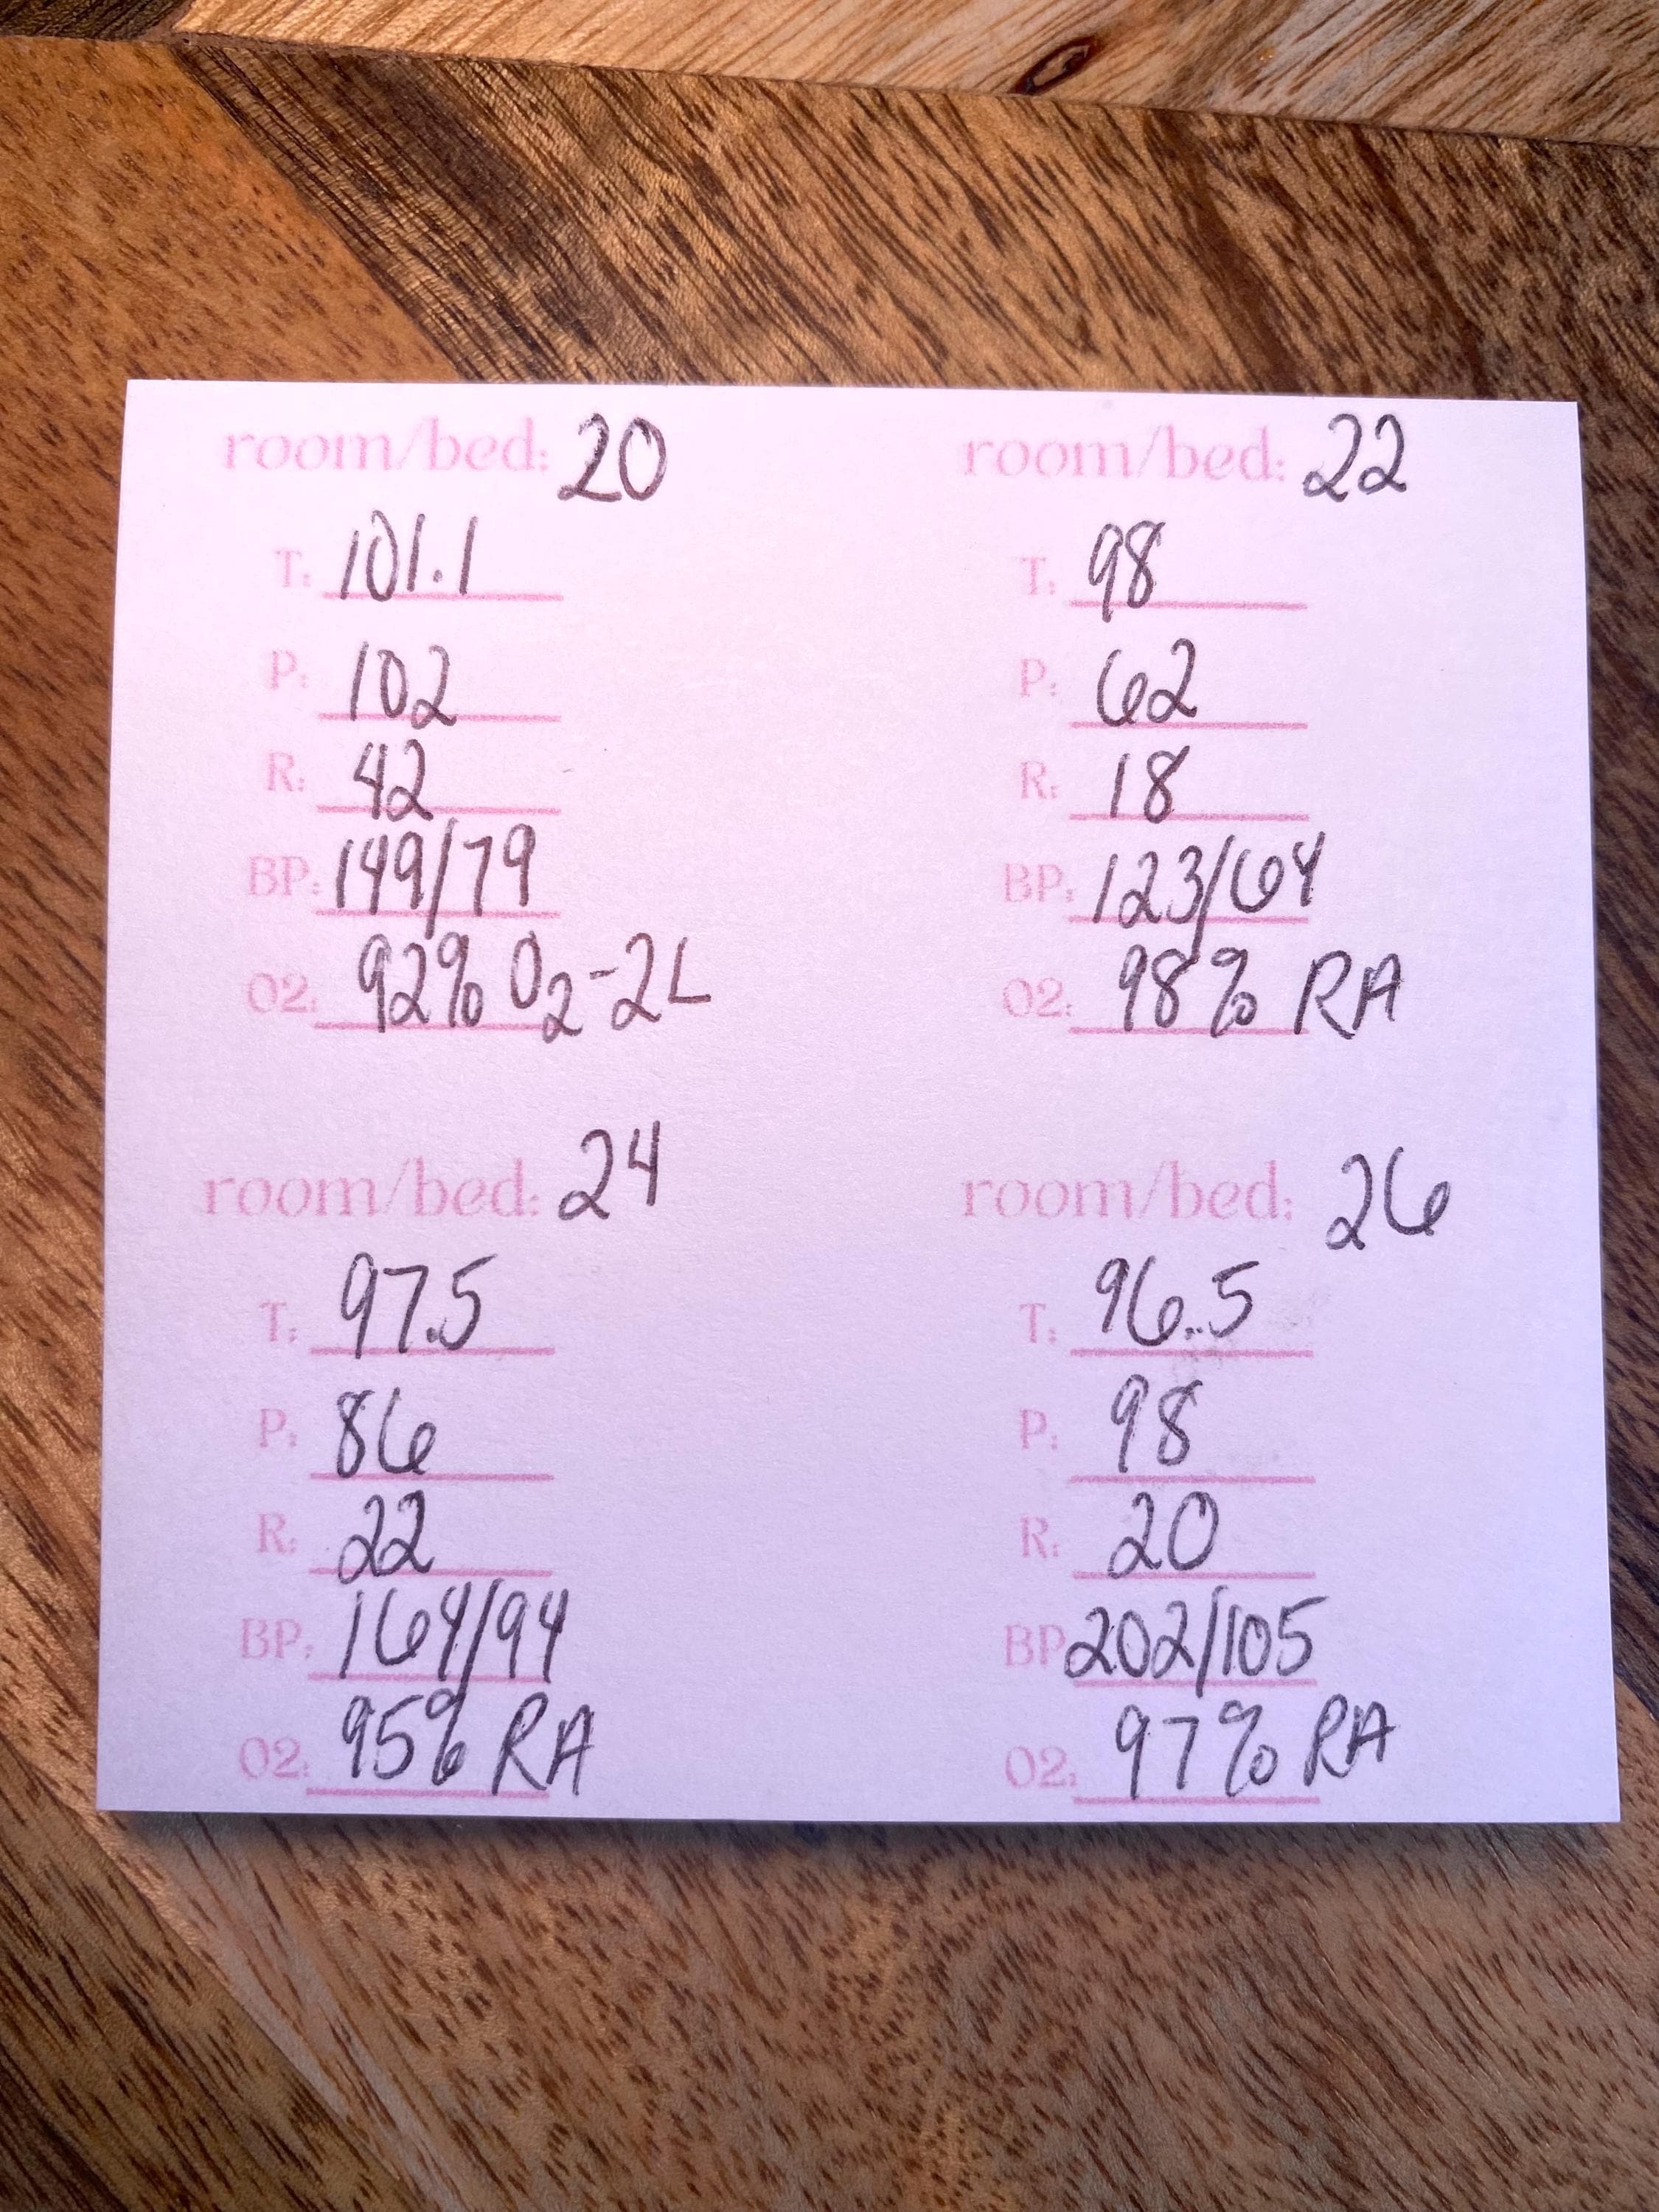 room/bed: 20
T: 101.1
P: 102
R: 42
BP: 149/79
O2: 92% O2-2L
room/bed: 22
T: 98
P: 62
R: 18
BP: 123/64
O2: 98% RA
room/bed: 24
T: 97.5
P: 86
R: 22
BP: 164/94
O2: 95% RA
room/bed: 26
T: 96.5
P: 98
R: 20
BP 202/105
O2: 97% RA